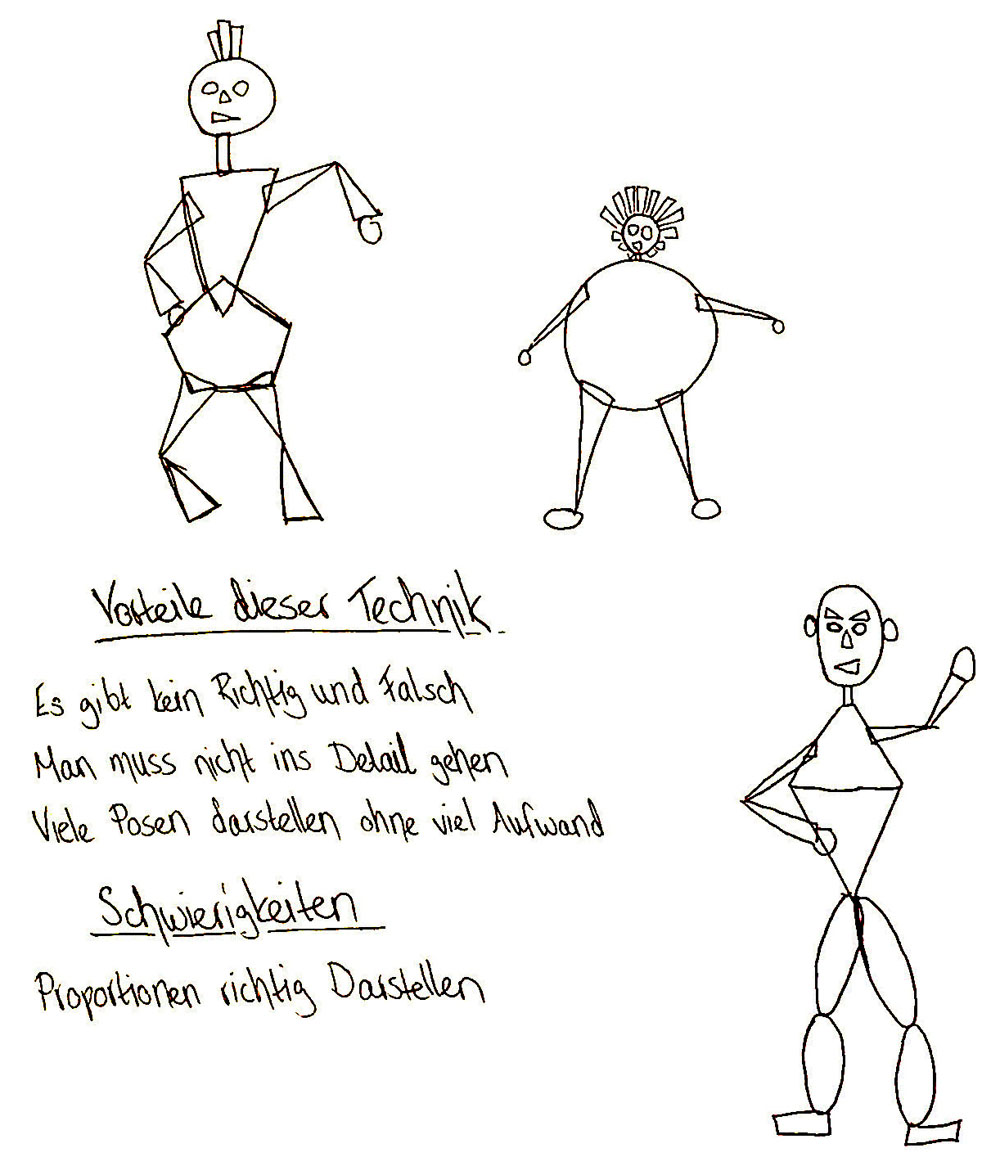 Vorteile dieser Technik
Es gibt kein Richtig und Falsch
Man muss nicht ins Detail gehen
Viele Posen darstellen ohne viel Aufwand
Schwierigkeiten
Proportionen richtig Darstellen